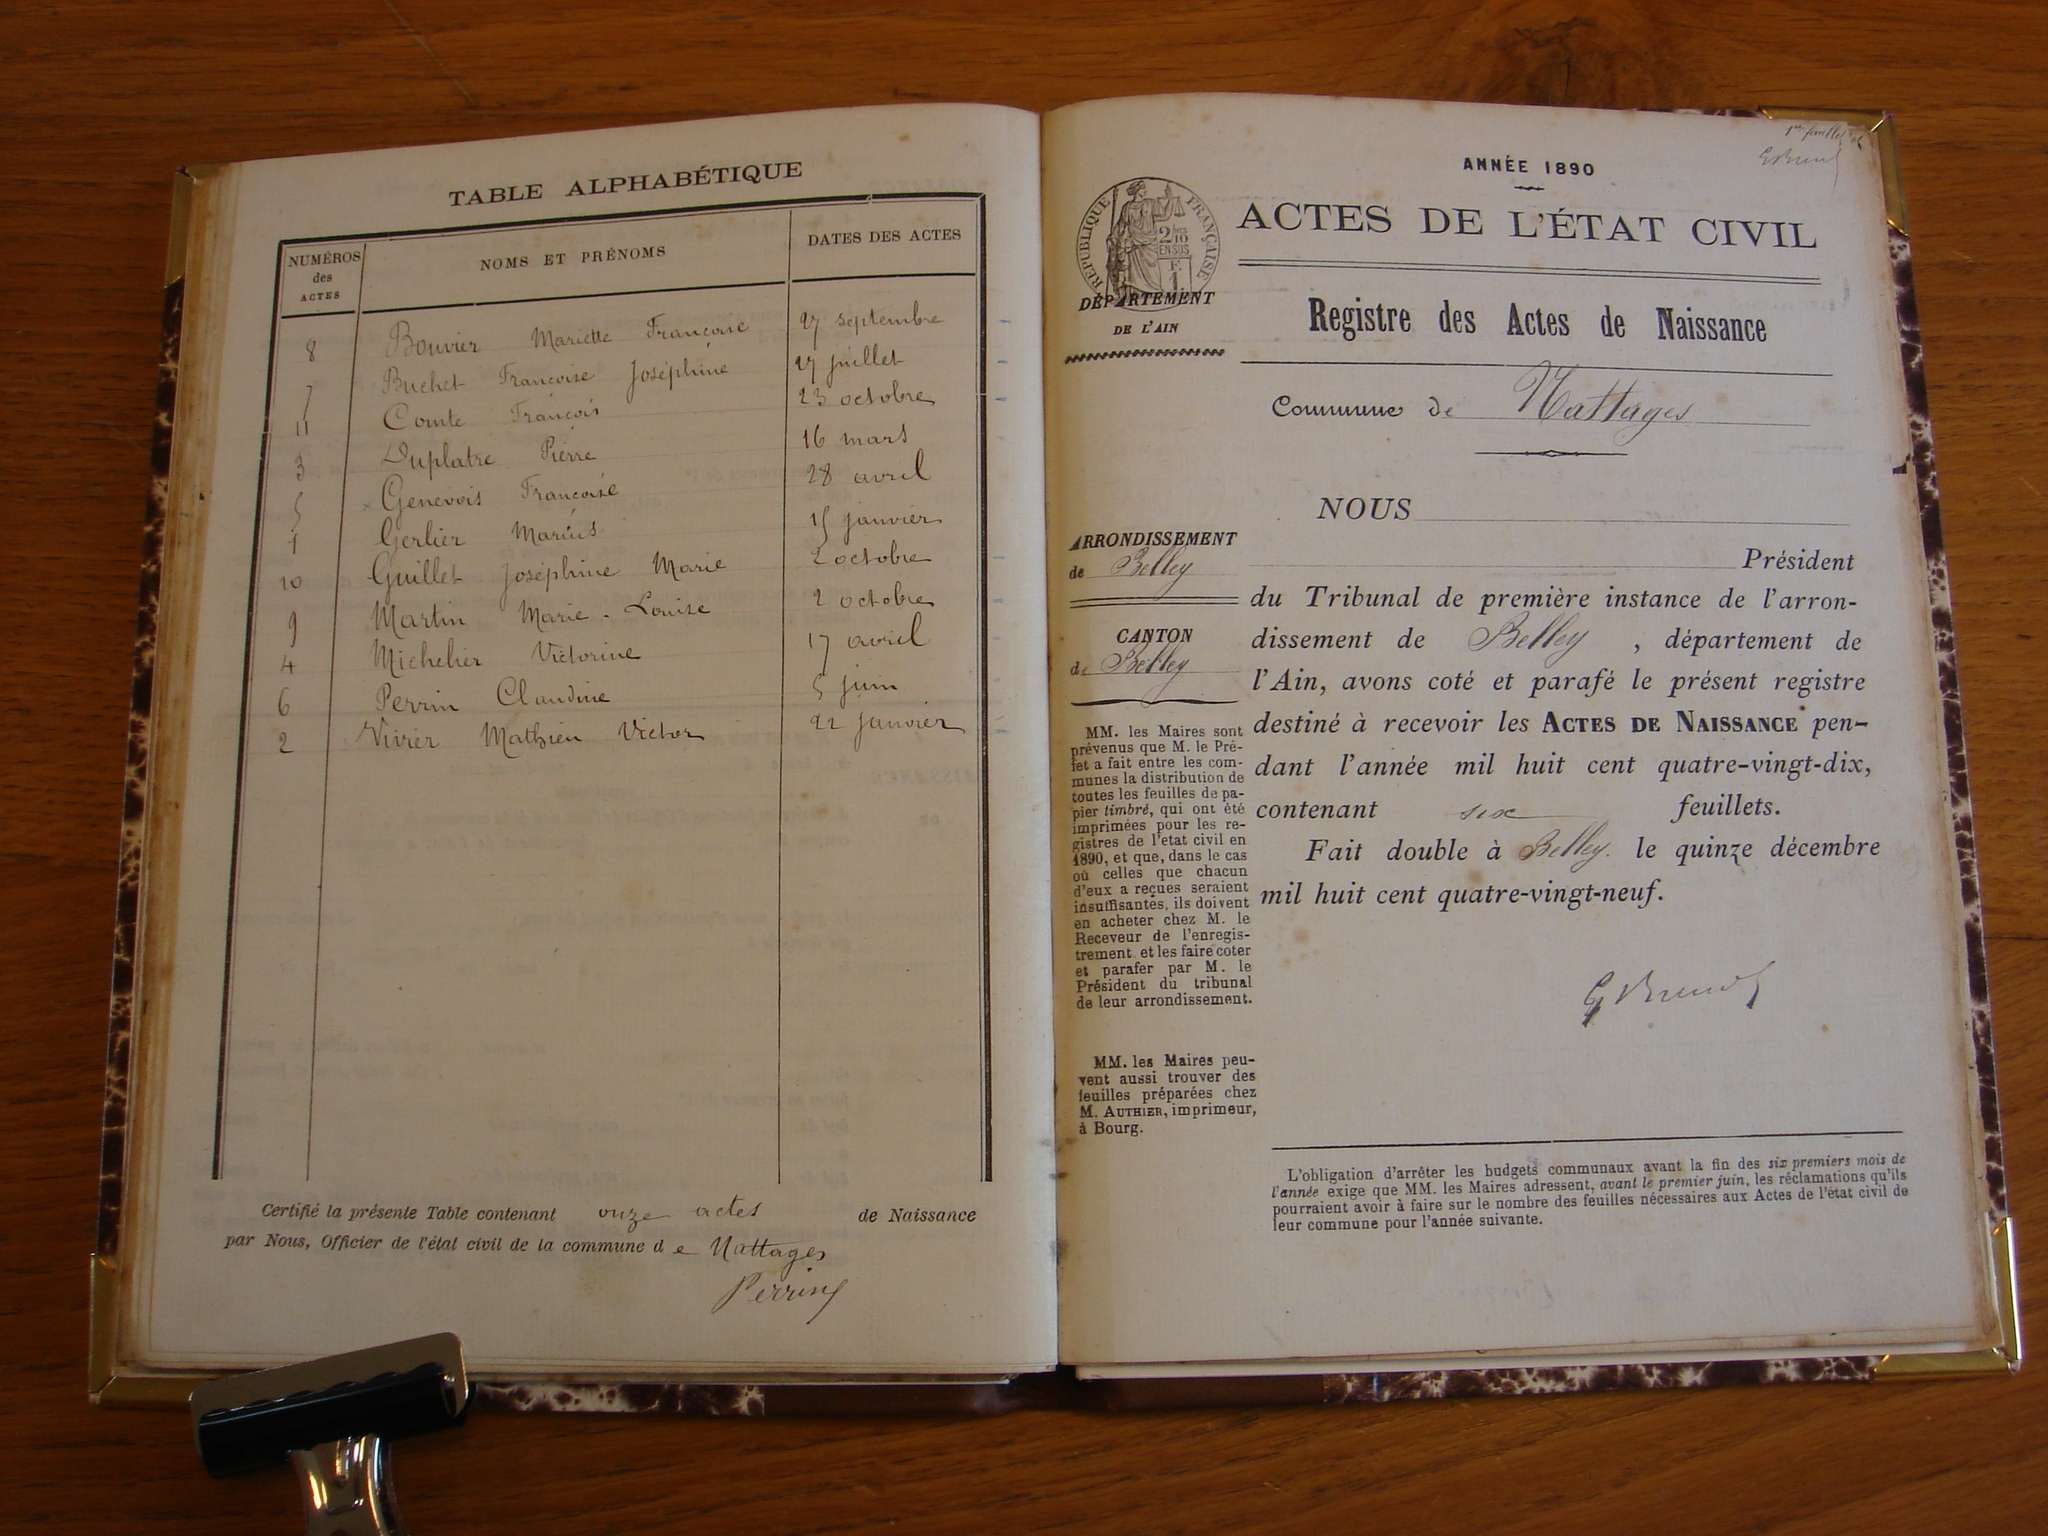 TABLE ALPHABÉTIQUE
NUMÉROS des ACTES NOMS ET PRÉNOMS DATES DES ACTES
8 Bouvier Mariette Françoise 27 septembre
7 Buchet Françoise Joséphine 27 juillet
11 Comte François 23 octobre
3 Duplatre Pierre 16 mars
5 Genevois Françoise 28 avril
1 Gerlier Marius 15 janvier
10 Guillet Joséphine Marie 2 octobre
9 Martin Marie-Louise 2 octobre
4 Michelier Victorine 17 avril
6 Perrin Claudine 5 juin
2 Vivier Mathieu Victor 22 janvier
Certifié la présente Table contenant onze actes de Naissance
par Nous, Officier de l'état civil de la commune de Nattages
Perrin
ANNÉE 1890
RÉPUBLIQUE FRANÇAISE
2/10 EN SUS
F. 1
ACTES DE L'ÉTAT CIVIL
DÉPARTEMENT
DE L'AIN
Registre des Actes de Naissance
Commune de Nattages
ARRONDISSEMENT
de Belley
CANTON
de Belley
MM. les Maires sont
prévenus que M. le Pré-
fet a fait entre les com-
munes la distribution de
toutes les feuilles de pa-
pier timbré, qui ont été
imprimées pour les re-
gistres de l'etat civil en
1890, et que, dans le cas
où celles que chacun
d'eux a reçues seraient
insuffisantes, ils doivent
en acheter chez M. le
Receveur de l'enregis-
trement, et les faire coter
et parafer par M. le
Président du tribunal
de leur arrondissement.
MM. les Maires peu-
vent aussi trouver des
feuilles préparées chez
M. AUTHIER, imprimeur,
à Bourg.
NOUS
Président
du Tribunal de première instance de l'arron-
dissement de Belley, département de
l'Ain, avons coté et parafé le présent registre
destiné à recevoir les ACTES DE NAISSANCE pen-
dant l'année mil huit cent quatre-vingt-dix,
contenant six feuillets.
Fait double à Belley. le quinze décembre
mil huit cent quatre-vingt-neuf.
L'obligation d'arrêter les budgets communaux avant la fin des six premiers mois de
l'année exige que MM. les Maires adressent, avant le premier juin, les réclamations qu'ils
pourraient avoir à faire sur le nombre des feuilles nécessaires aux Actes de l'état civil de
leur commune pour l'année suivante.